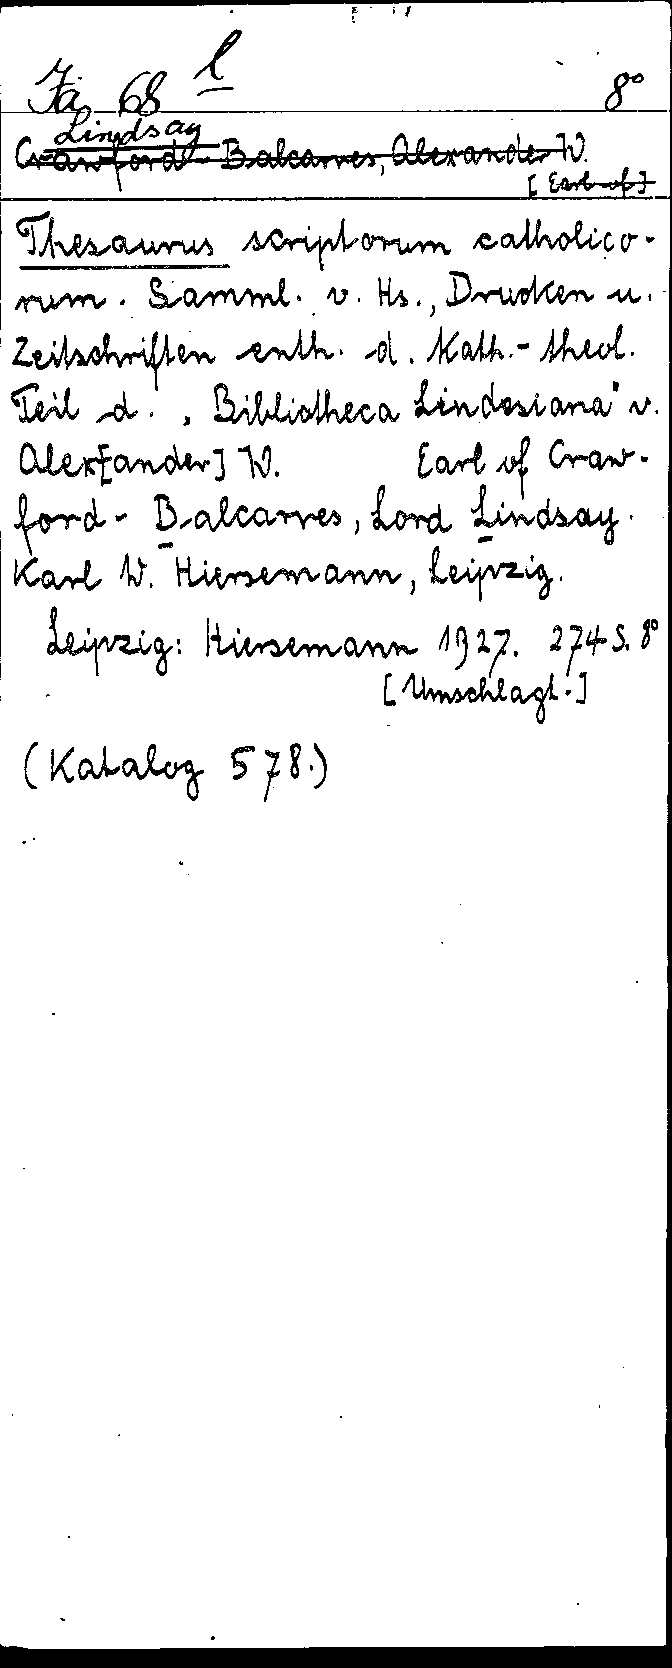 Ja 68 l 8°
Lindsay
Crawford-Balcarres, Alexander W.
[Earl of]
Thesaurus scriptorum catholico-
rum. Samml. v. Hs., Drucken u.
Zeitschriften enth. d. Kath.-theol.
Teil d. „Bibliotheca Lindesiana" v.
Alex[ander] W. Earl of Craw-
ford-Balcarres, Lord Lindsay.
Karl W. Hiersemann, Leipzig.
Leipzig: Hiersemann 1927. 274 S. 8°
[Umschlagt.]
(Katalog 578.)